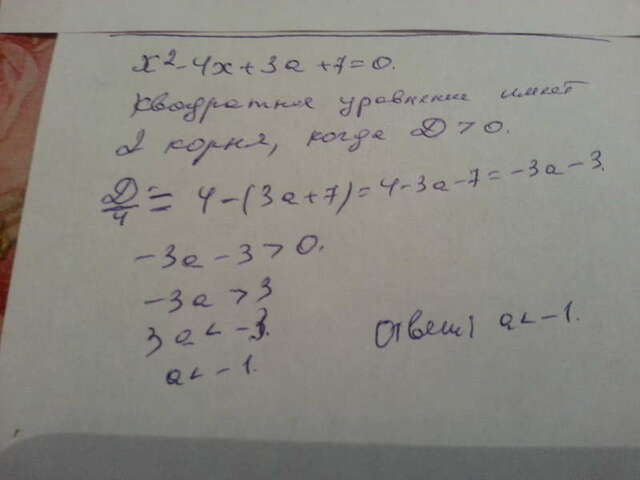 x²-4x+3a+7=0.
Квадратное уравнение имеет
2 корня, когда D>0.
D/4 = 4-(3a+7)=4-3a-7=-3a-3.
-3a-3>0.
-3a>3
3a<-3.
a<-1.
Ответ: a<-1.